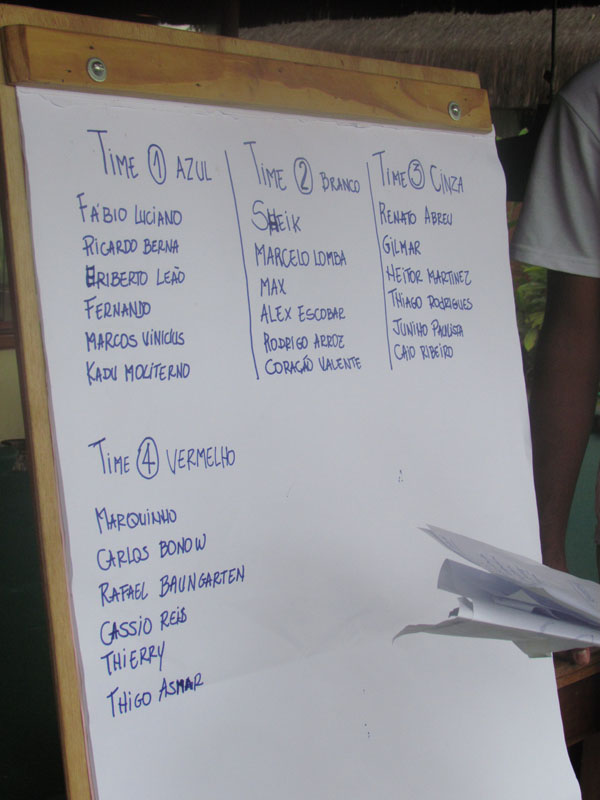 Time 1 AZUL
FÁBIO LUCIANO
RICARDO BERNA
ERIBERTO LEÃO
FERNANDO
MARCOS VINICIUS
KADU MOLITERNO
Time 2 BRANCO
SHEIK
MARCELO LOMBA
MAX
ALEX ESCOBAR
RODRIGO ARROZ
CORAÇÃO VALENTE
Time 3 CINZA
RENATO ABREU
GILMAR
HEITOR MARTINEZ
THIAGO RODRIGUES
JUNINHO PAULISTA
CAIO RIBEIRO
Time 4 VERMELHO
MARQUINHO
CARLOS BONOW
RAFAEL BAUNGARTEN
CASSIO REIS
THIERRY
THIGO ASMAR